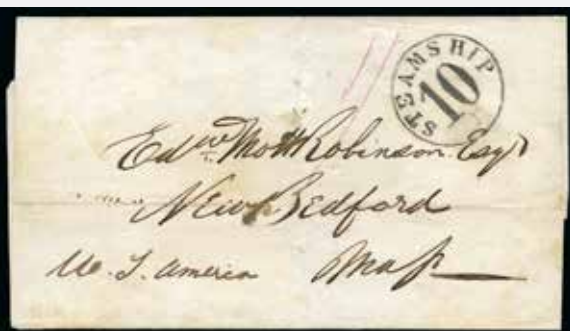 STEAMSHIP
10
Edwd Mott Robinson Esqr
New Bedford
U. S. America Mass